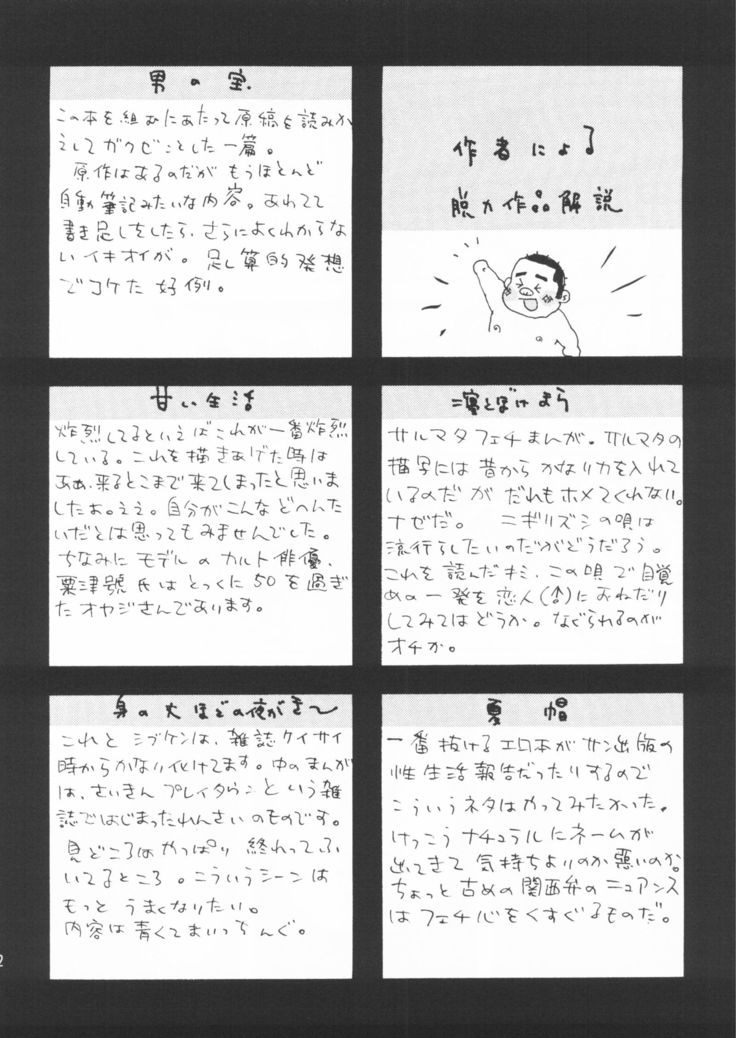 作者による
脱力作品解説
男の宝
この本を組むにあたって原稿を読みか
えしてガクゼンとした一篇。
原作はあるのだが もうほとんど
自動筆記みたいな内容。あわてて
書き足しをしたら、さらによくわからな
いイキオイが。足し算的発想
でコケた好例。
とぼけまら
サルマタフェチまんが。サルマタの
描写には昔から かなり力を入れて
いるのだが だれもホメてくれない。
ナゼだ。 ニギリズシの唄は
流行らしたいのだがどうだろう。
これを読んだキミ、この唄で目覚
めの一発を恋人(♂)におねだり
してみてはどうか。なぐられるのが
オチか。
甘い生活
炸烈してるといえばこれが一番炸烈
している。これを描きあげた時は
あぁ、来るとこまで来てしまったと思いま
したよ。ええ。自分がこんなどへんた
いだとは思ってもみませんでした。
ちなみに モデルの カルト俳優、
粟津號氏はとっくに50を過ぎ
たオヤジさんであります。
夏 帽
一番抜けるエロ本がサン出版の
性生活報告だったりするので
こういうネタはやってみたかった。
けっこうナチュラルにネームが
出てきて 気持ちよいのか悪いのか。
ちょっと古めの関西弁のニュアンス
はフェチ心をくすぐるものだ。
身の丈ほどの夜がき〜
これと シブケンは、雑誌ケイサイ
時からかなり化けてます。中のまんが
は、さいきん プレイタウンという雑
誌ではじまったれんさいのものです。
見どころはやっぱり 終わってふ
いてるところ。こういうシーンは
もっと うまくなりたい。
内容は青くてまいっちんぐ。
2